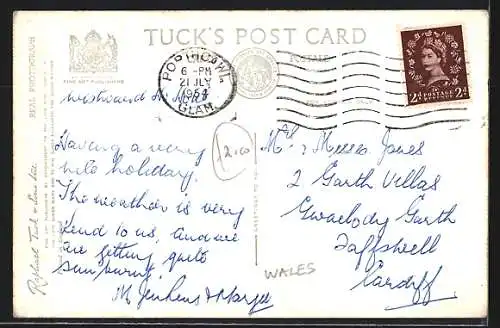 TUCK'S POST CARD
REAL PHOTOGRAPH
FINE ART PUBLISHERS
POSTAGE
PORTHCAWL
6-PM
21 JLY
1954
GLAM.
2d POSTAGE REVENUE 2d
Westward
Having a very
nice holiday.
The weather is very
kind to us, and we
are getting quite
sunburnt.
M Jenkins & Margot
12.00
WALES
Misses Jones
2 Garth Villas
Gwaelody Garth
Taffswell
Cardiff
Raphael Tuck & Sons Ltd.